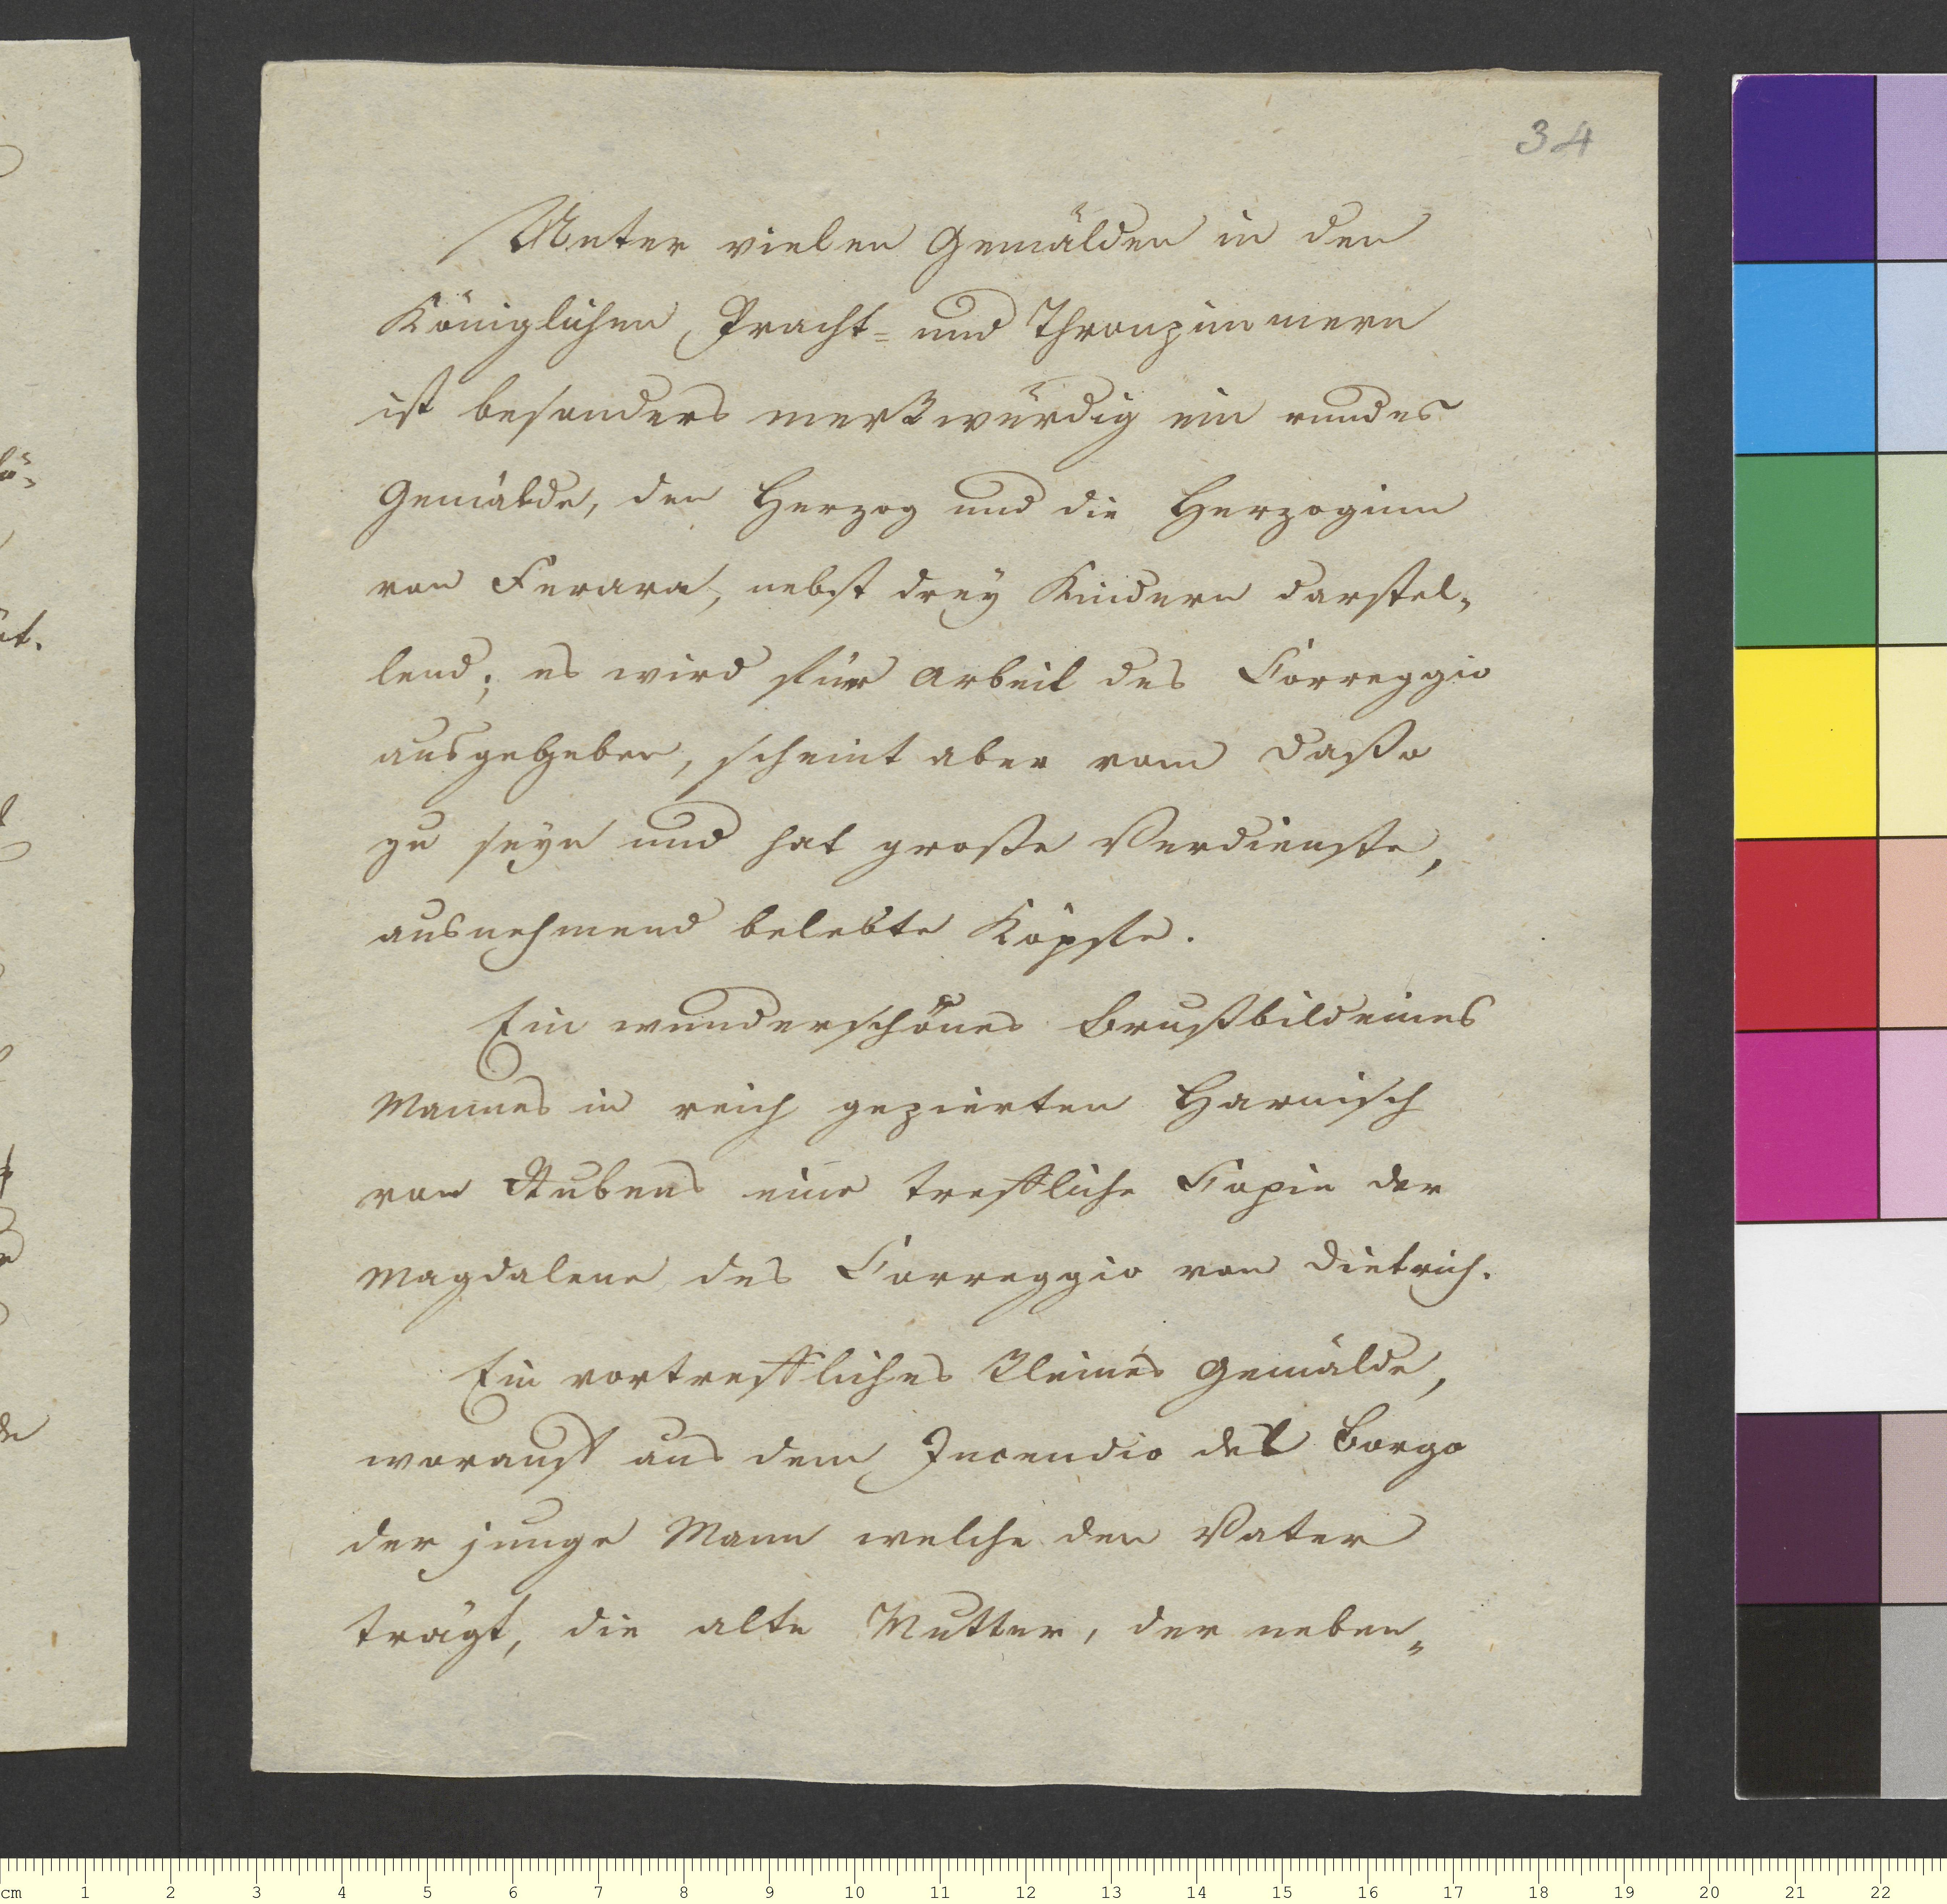 34
Unter vielen Gemälden in den
Königlichen Pracht= und Thronzimmern
ist besonders merkwürdig ein rundes
Gemälde, den Herzog und die Herzoginn
von Ferara, nebst drey Kindern darstel„
lend; es wird für Arbeit des Correggio
ausgegeben, scheint aber vom Dasso
zu seyn und hat große Verdienste,
ausnehmend belebte Köpfe.
Ein wunderschönes Brustbild eines
Mannes in reich gezierten Harnisch
von Rubens eine treffliche Copie der
Magdalene des Correggio von Dietrich.
Ein vortreffliches kleines Gemälde,
worauf aus dem Incendio del Borgo
der junge Mann welche den Vater
trägt, die alte Mutter, der neben„
cm 1 2 3 4 5 6 7 8 9 10 11 12 13 14 15 16 17 18 19 20 21 22